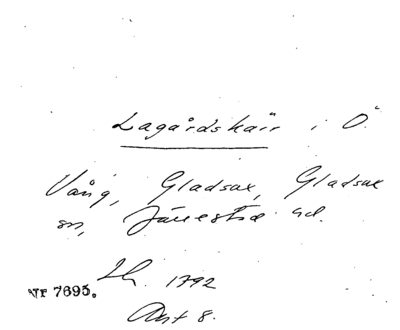 Lagårdskärr i Ö.
Vång, Gladsax, Gladsax
sn, Järrestad hd.
Lh. 1792
Nr 7695.
Akt 8.